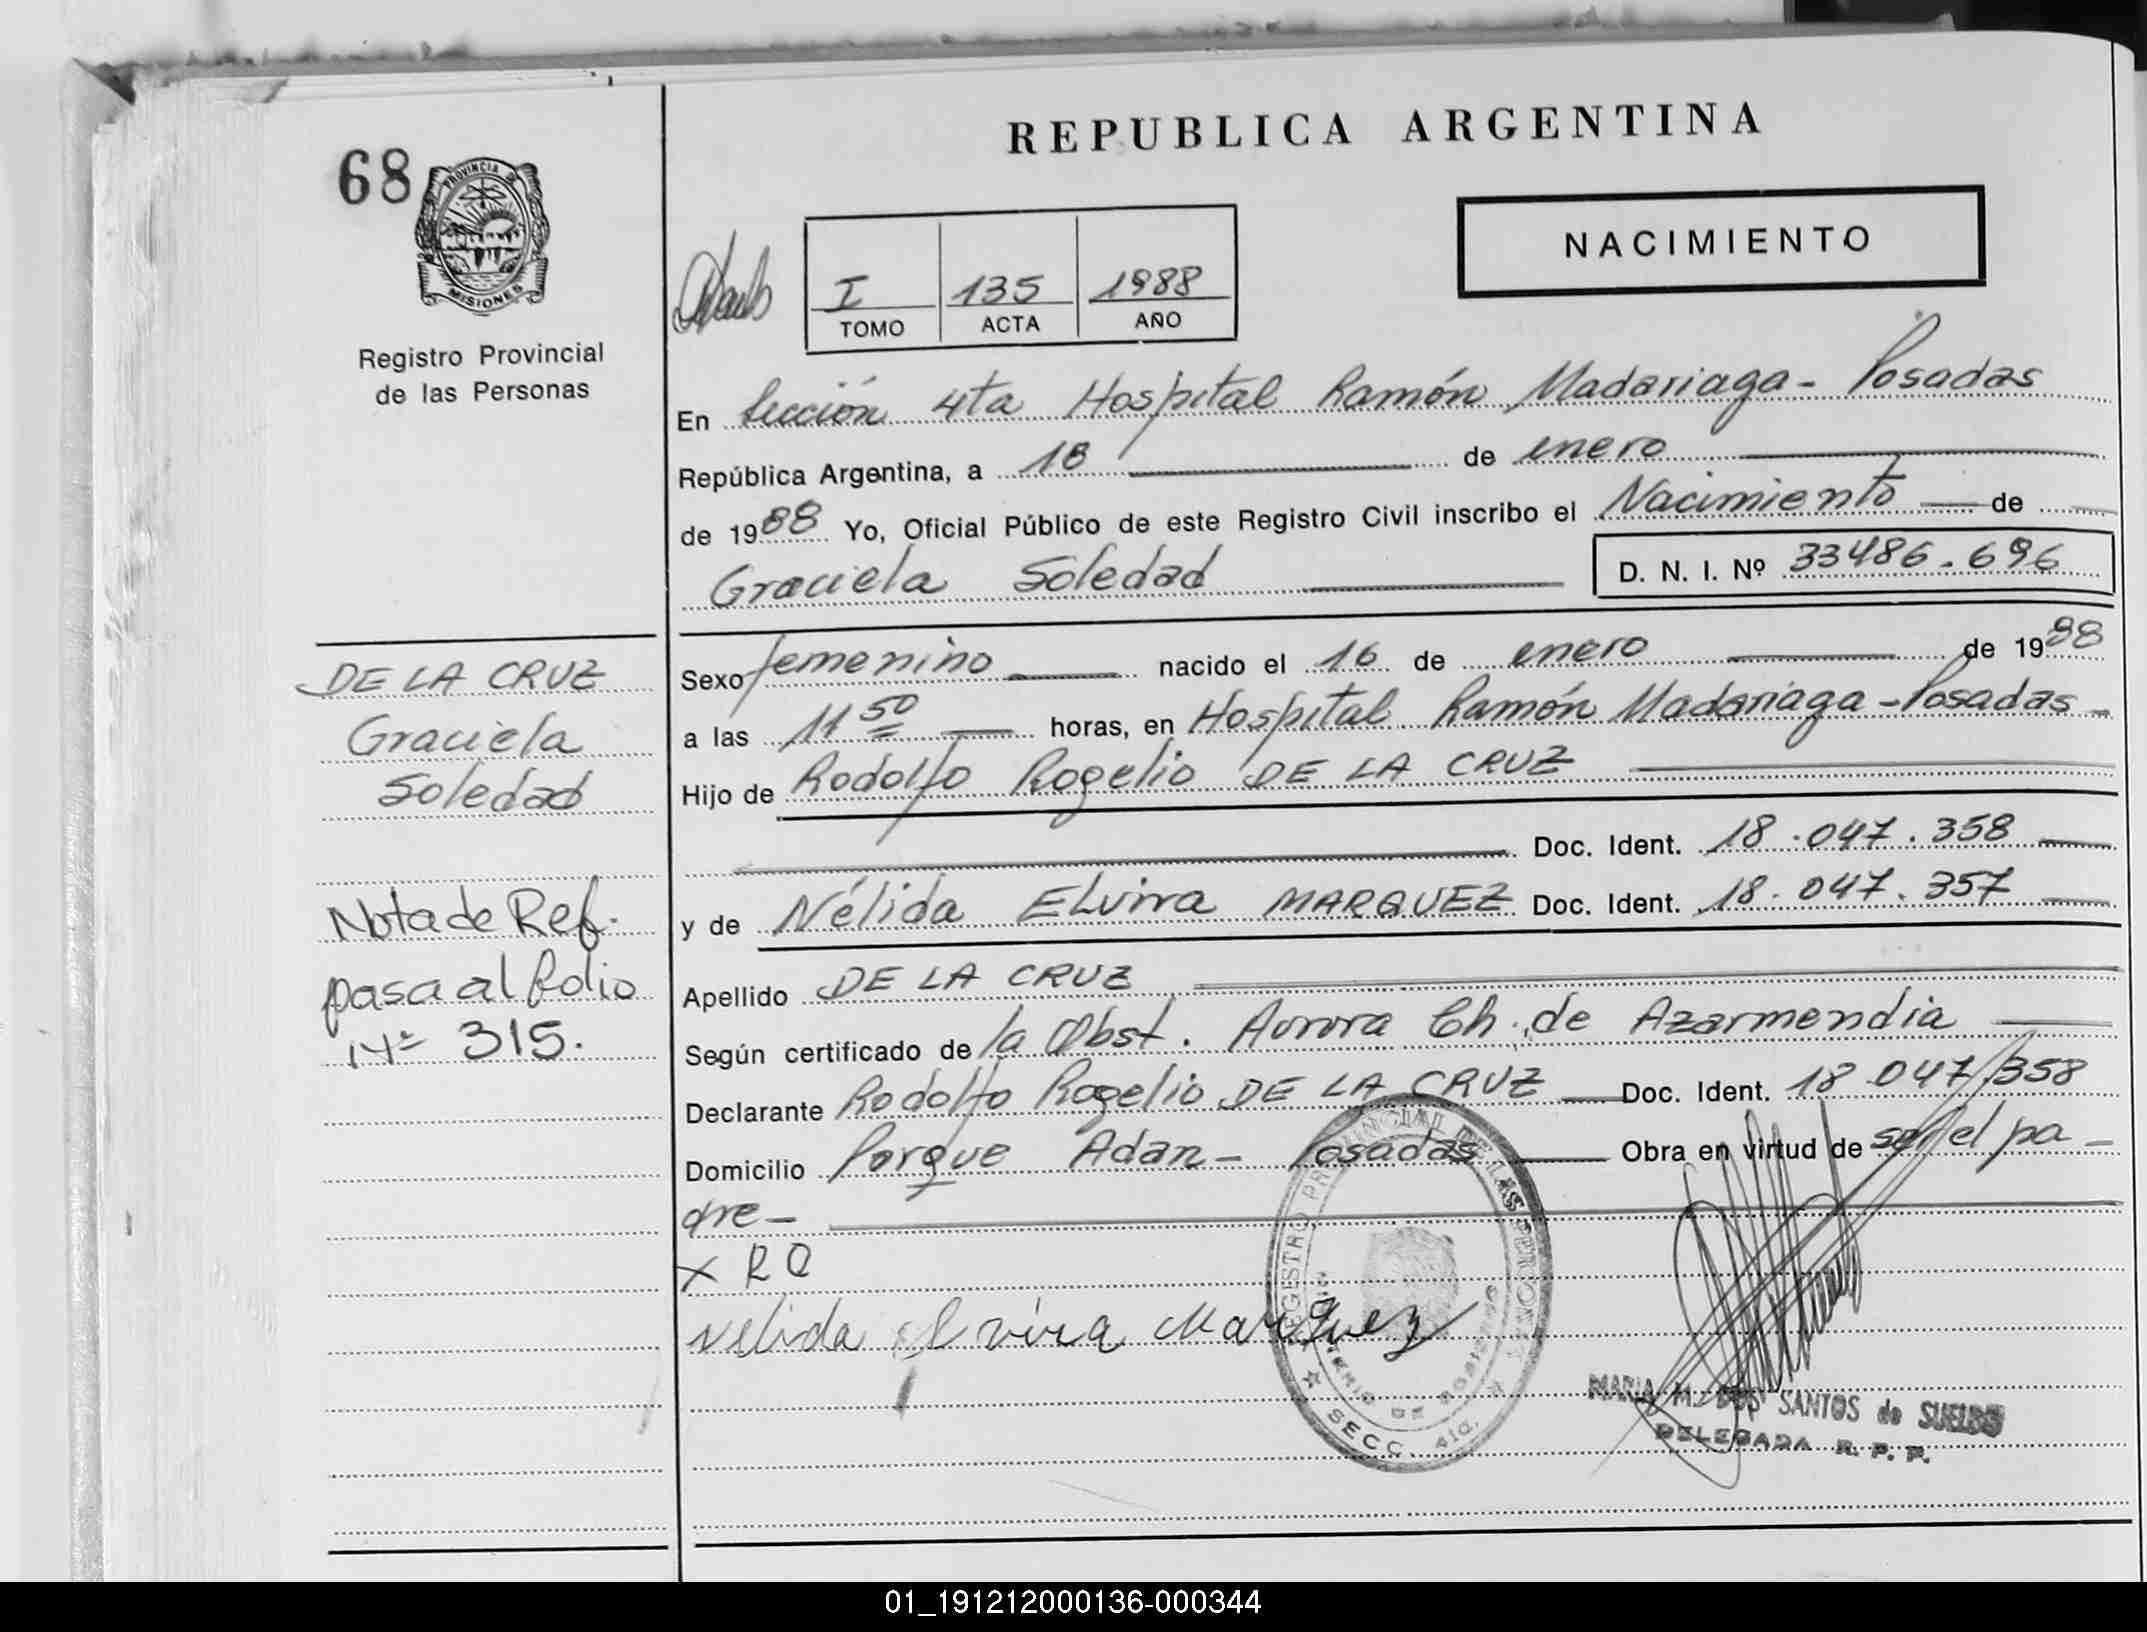 REPUBLICA ARGENTINA
68
PROVINCIA DE
MISIONES
Registro Provincial
de las Personas
NACIMIENTO
I 135 1988
TOMO ACTA AÑO
En Sección 4ta Hospital Ramón Madariaga - Posadas
República Argentina, a 18 de enero
de 1988 Yo, Oficial Público de este Registro Civil inscribo el Nacimiento de
Graciela Soledad D. N. I. Nº 33486.696
DE LA CRUZ
Graciela
Soledad
Nota de Ref.
pasa al folio
Nº 315.
Sexo femenino nacido el 16 de enero de 1988
a las 11 50 horas, en Hospital Ramón Madariaga - Posadas -
Hijo de Rodolfo Rogelio DE LA CRUZ
Doc. Ident. 18.047.358
y de Nélida Elvira MARQUEZ Doc. Ident. 18.047.357
Apellido DE LA CRUZ
Según certificado de la Obst. Aurora Ch. de Azarmendia
Declarante Rodolfo Rogelio DE LA CRUZ Doc. Ident. 18.047.358
Domicilio Porque Adan - Posadas Obra en virtud de ser el pa-
dre -
x R Q
Nelida Elvira Marquez
REGISTRO PROVINCIAL DE LAS PERSONAS
SECC. 4ta.
MARIA M. DOS SANTOS de SUELDO
DELEGADA R. P. P.
01_191212000136-000344